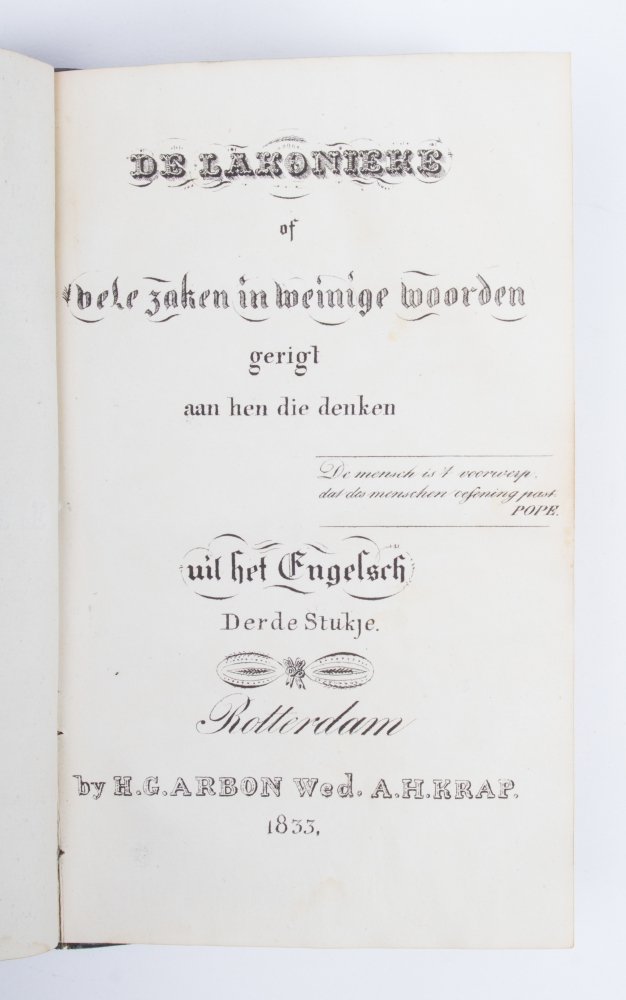 DE LAKONIEKE
of
vele zaken in weinige woorden
gerigt
aan hen die denken
De mensch is 't voorwerp,
dat des menschen oefening past.
POPE.
uit het Engelsch
Derde Stukje.
Rotterdam
by H.G. ARBON Wed. A.H. KRAP.
1833,